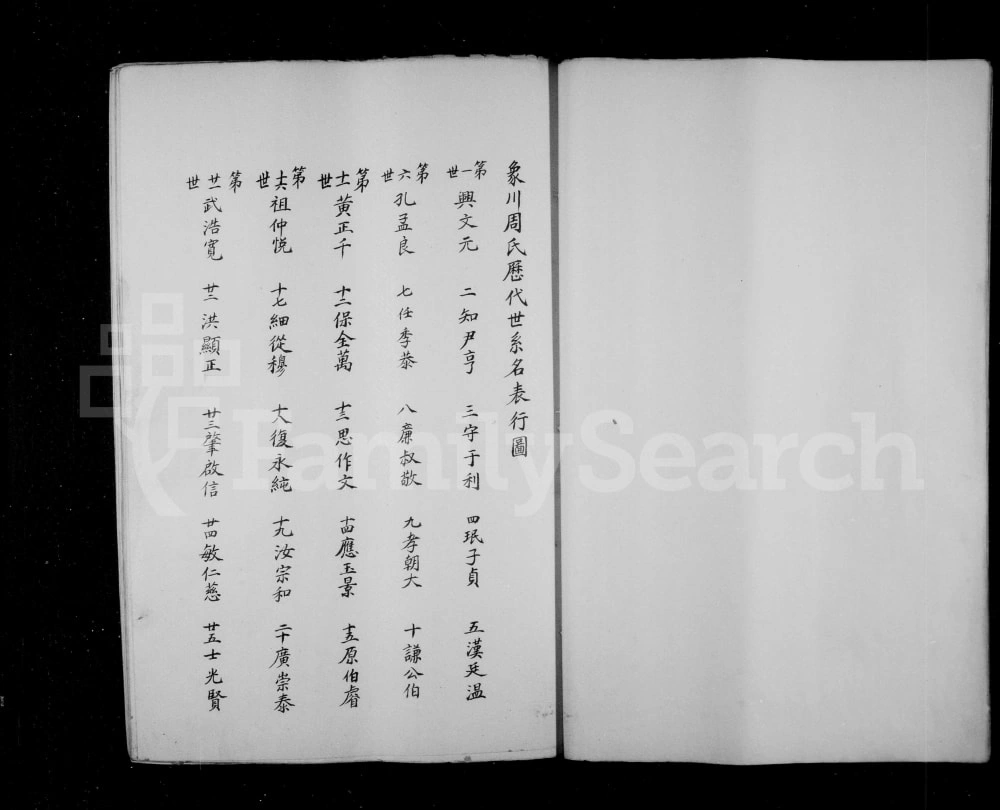 象川周氏歷代世系名表行圖
第一世 興文元 二知尹亨 三守于利 四珉子貞 五漢廷溫
第六世 孔孟良 七任季恭 八廉叔敬 九孝朝大 十謙公伯
第十一世 黃正千 十二保全萬 十三思作文 十四應玉景 十五原伯睿
第十六世 祖仲悅 十七細從穆 十八復永純 十九汝宗和 二十廣崇泰
第廿一世 武浩寬 廿二洪顯正 廿三肇啟信 廿四敏仁慈 廿五士光賢
FamilySearch